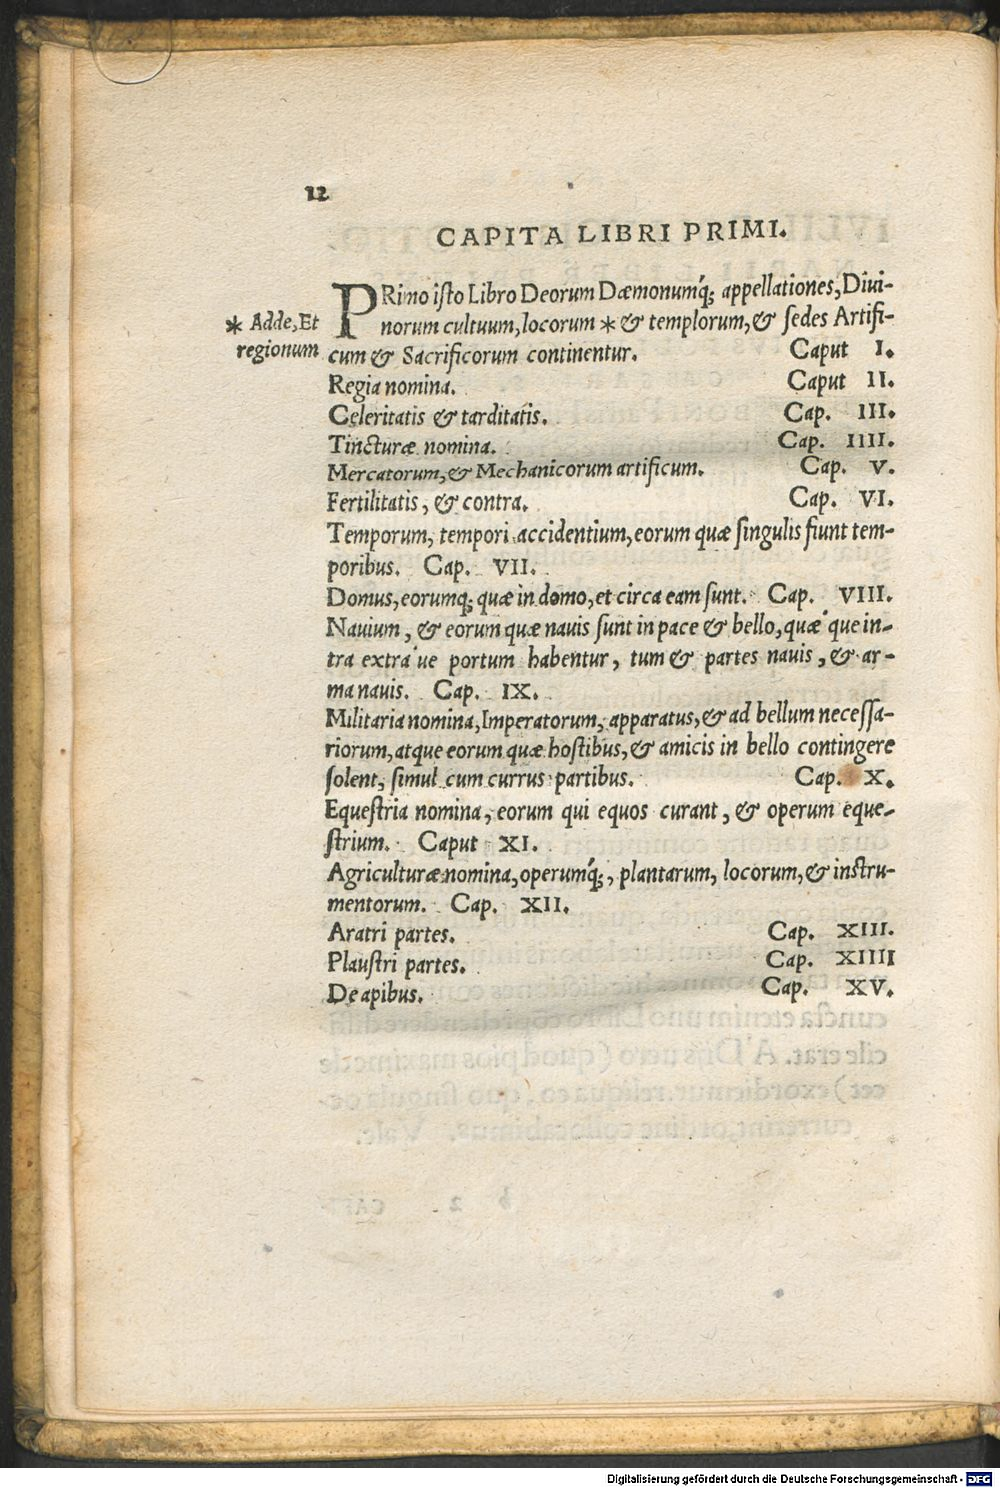 12
CAPITA LIBRI PRIMI.
PRimo isto Libro Deorum Dæmonumq́; appellationes, Divi-
norum cultuum, locorum * & templorum, & sedes Artifi-
* Adde, Et
regionum
cum & Sacrificorum continentur. Caput I.
Regia nomina. Caput II.
Celeritatis & tarditatis. Cap. III.
Tincturæ nomina. Cap. IIII.
Mercatorum, & Mechanicorum artificum. Cap. V.
Fertilitatis, & contra. Cap. VI.
Temporum, tempori accidentium, eorum quæ singulis fiunt tem-
poribus. Cap. VII.
Domus, eorumq; quæ in domo, et circa eam sunt. Cap. VIII.
Navium, & eorum quæ navis sunt in pace & bello, quæ´que in-
tra extra´ue portum habentur, tum & partes navis, & ar-
ma navis. Cap. IX.
Militaria nomina, Imperatorum, apparatus, & ad bellum necessa-
riorum, atque eorum quæ hostibus, & amicis in bello contingere
solent, simul cum currus partibus. Cap. X.
Equestria nomina, eorum qui equos curant, & operum eque-
strium. Caput XI.
Agriculturæ nomina, operumq́;, plantarum, locorum, & instru-
mentorum. Cap. XII.
Aratri partes. Cap. XIII.
Plaustri partes. Cap. XIIII
De apibus. Cap. XV.
Digitalisierung gefördert durch die Deutsche Forschungsgemeinschaft - DFG